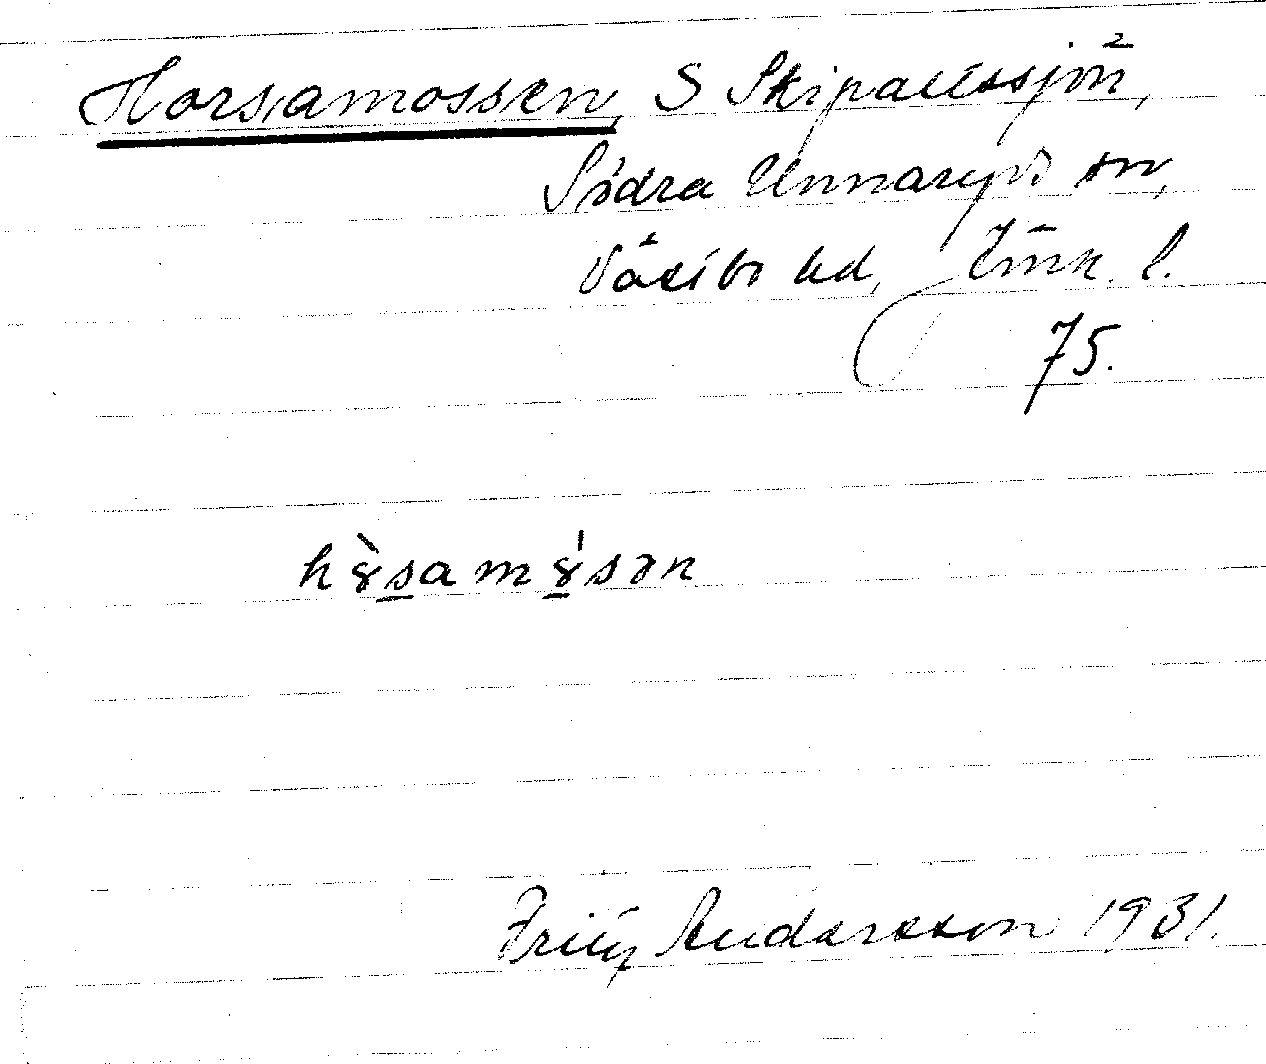 Horsamossen, S Skipaltssjön,
Södra Unnaryds sn,
Västbo hd, Jönk. l.
75.
hɤ̀samɤ̍sən
Fritz Andersson 1931.